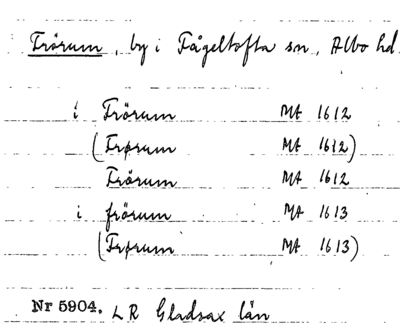 Frörum, by i Fågeltofta sn, Albo hd.
i Frörum MA 1612
(Frørum MA 1612)
Frörum MA 1612
i frörum MA 1613
(Frørum MA 1613)
Nr 5904. LR Gladsax län